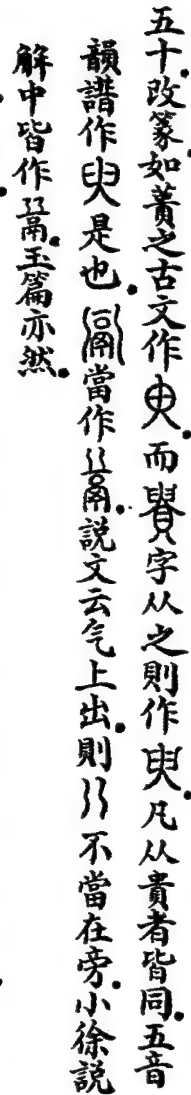 五十改篆如蕢之古文作而字从之則作臾。凡从貴者皆同。五音
韻譜作臾是也。䰜當作。說文云气上出。則不當在旁。小徐說
解中皆作。玉篇亦然。